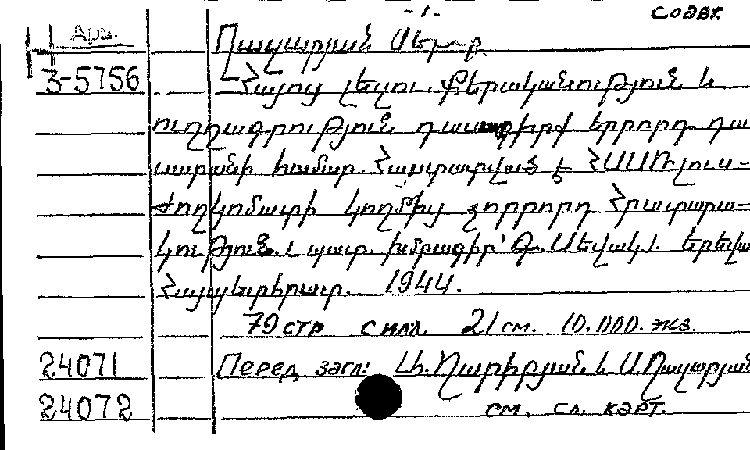 -1- совк.
Арм. Ղազարյան Սեր-ը
3-5756 Հայոց լեզու. Քերականություն և
ուղղագրություն դասագիրք երրորդ դա
սարանի համար. Հաստատված է ՀՍՍՌ լուս-
ժողկոմատի կողմից չորրորդ Հրատարա-
կություն. պատ. խմբագիր՝ Գ. Սևակ. Երևա
Հայպետհրատ. 1944.
79 стр с илл. 21 см. 10.000. экз.
24071 Перед загл: Ղարիբյան և Ս. Ղազարյան
24072 см. сл. карт.